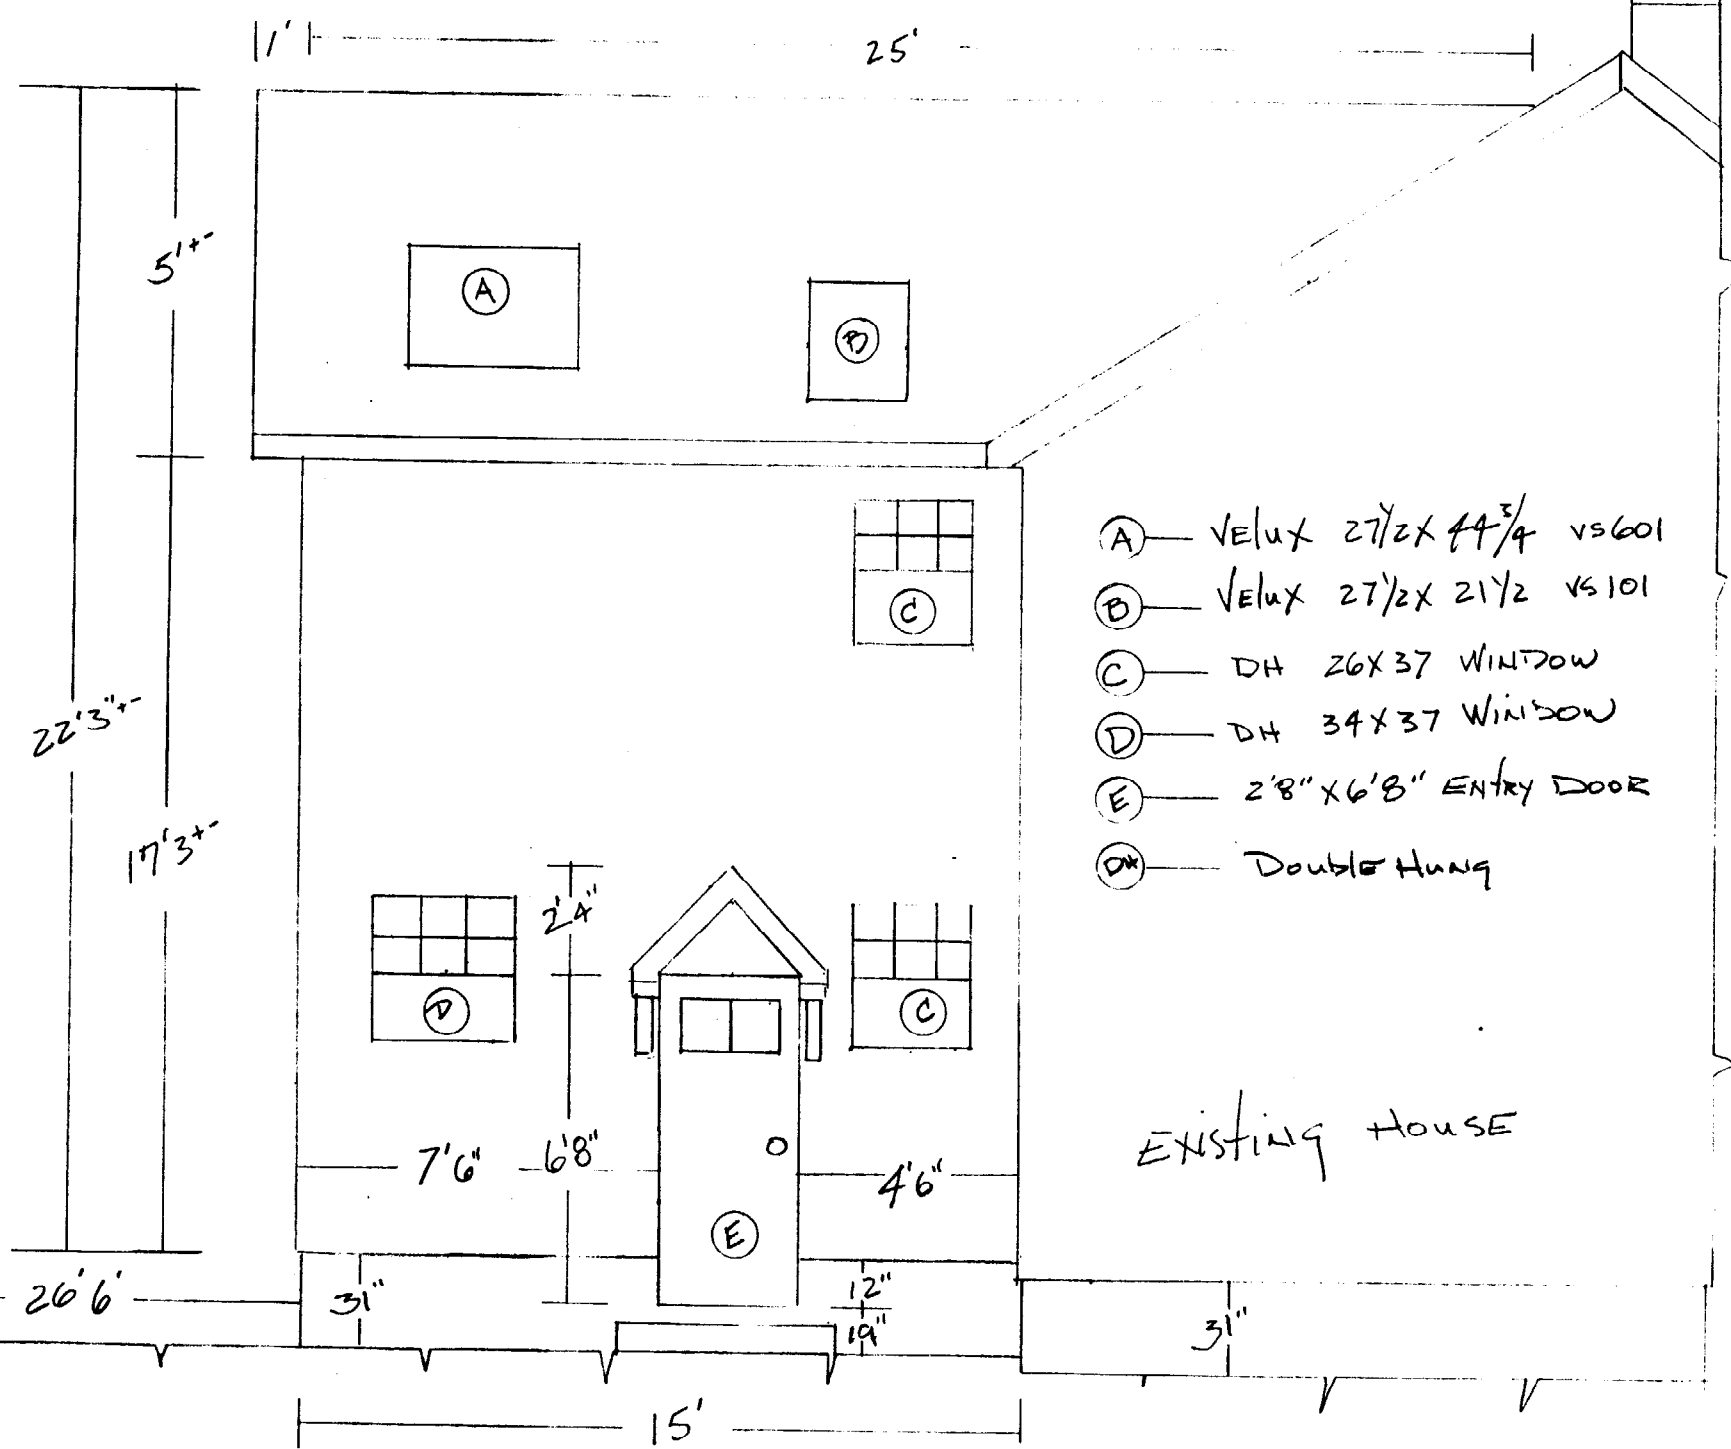 1' 25'
5'+-
A
B
A VElux 27 1/2 X 44 3/4 VS601
B VElux 27 1/2 X 21 1/2 VS101
C DH 26X37 WINDOW
D DH 34X37 WINDOW
E 2'8" X 6'8" ENtRY DOOR
DH DoublE Hung
C
22'3"+-
17'3+-
2'4"
D
C
7'6" 6'8" 4'6"
EXISTING HOUSE
E
26'6'
31"
12"
19"
31"
15'